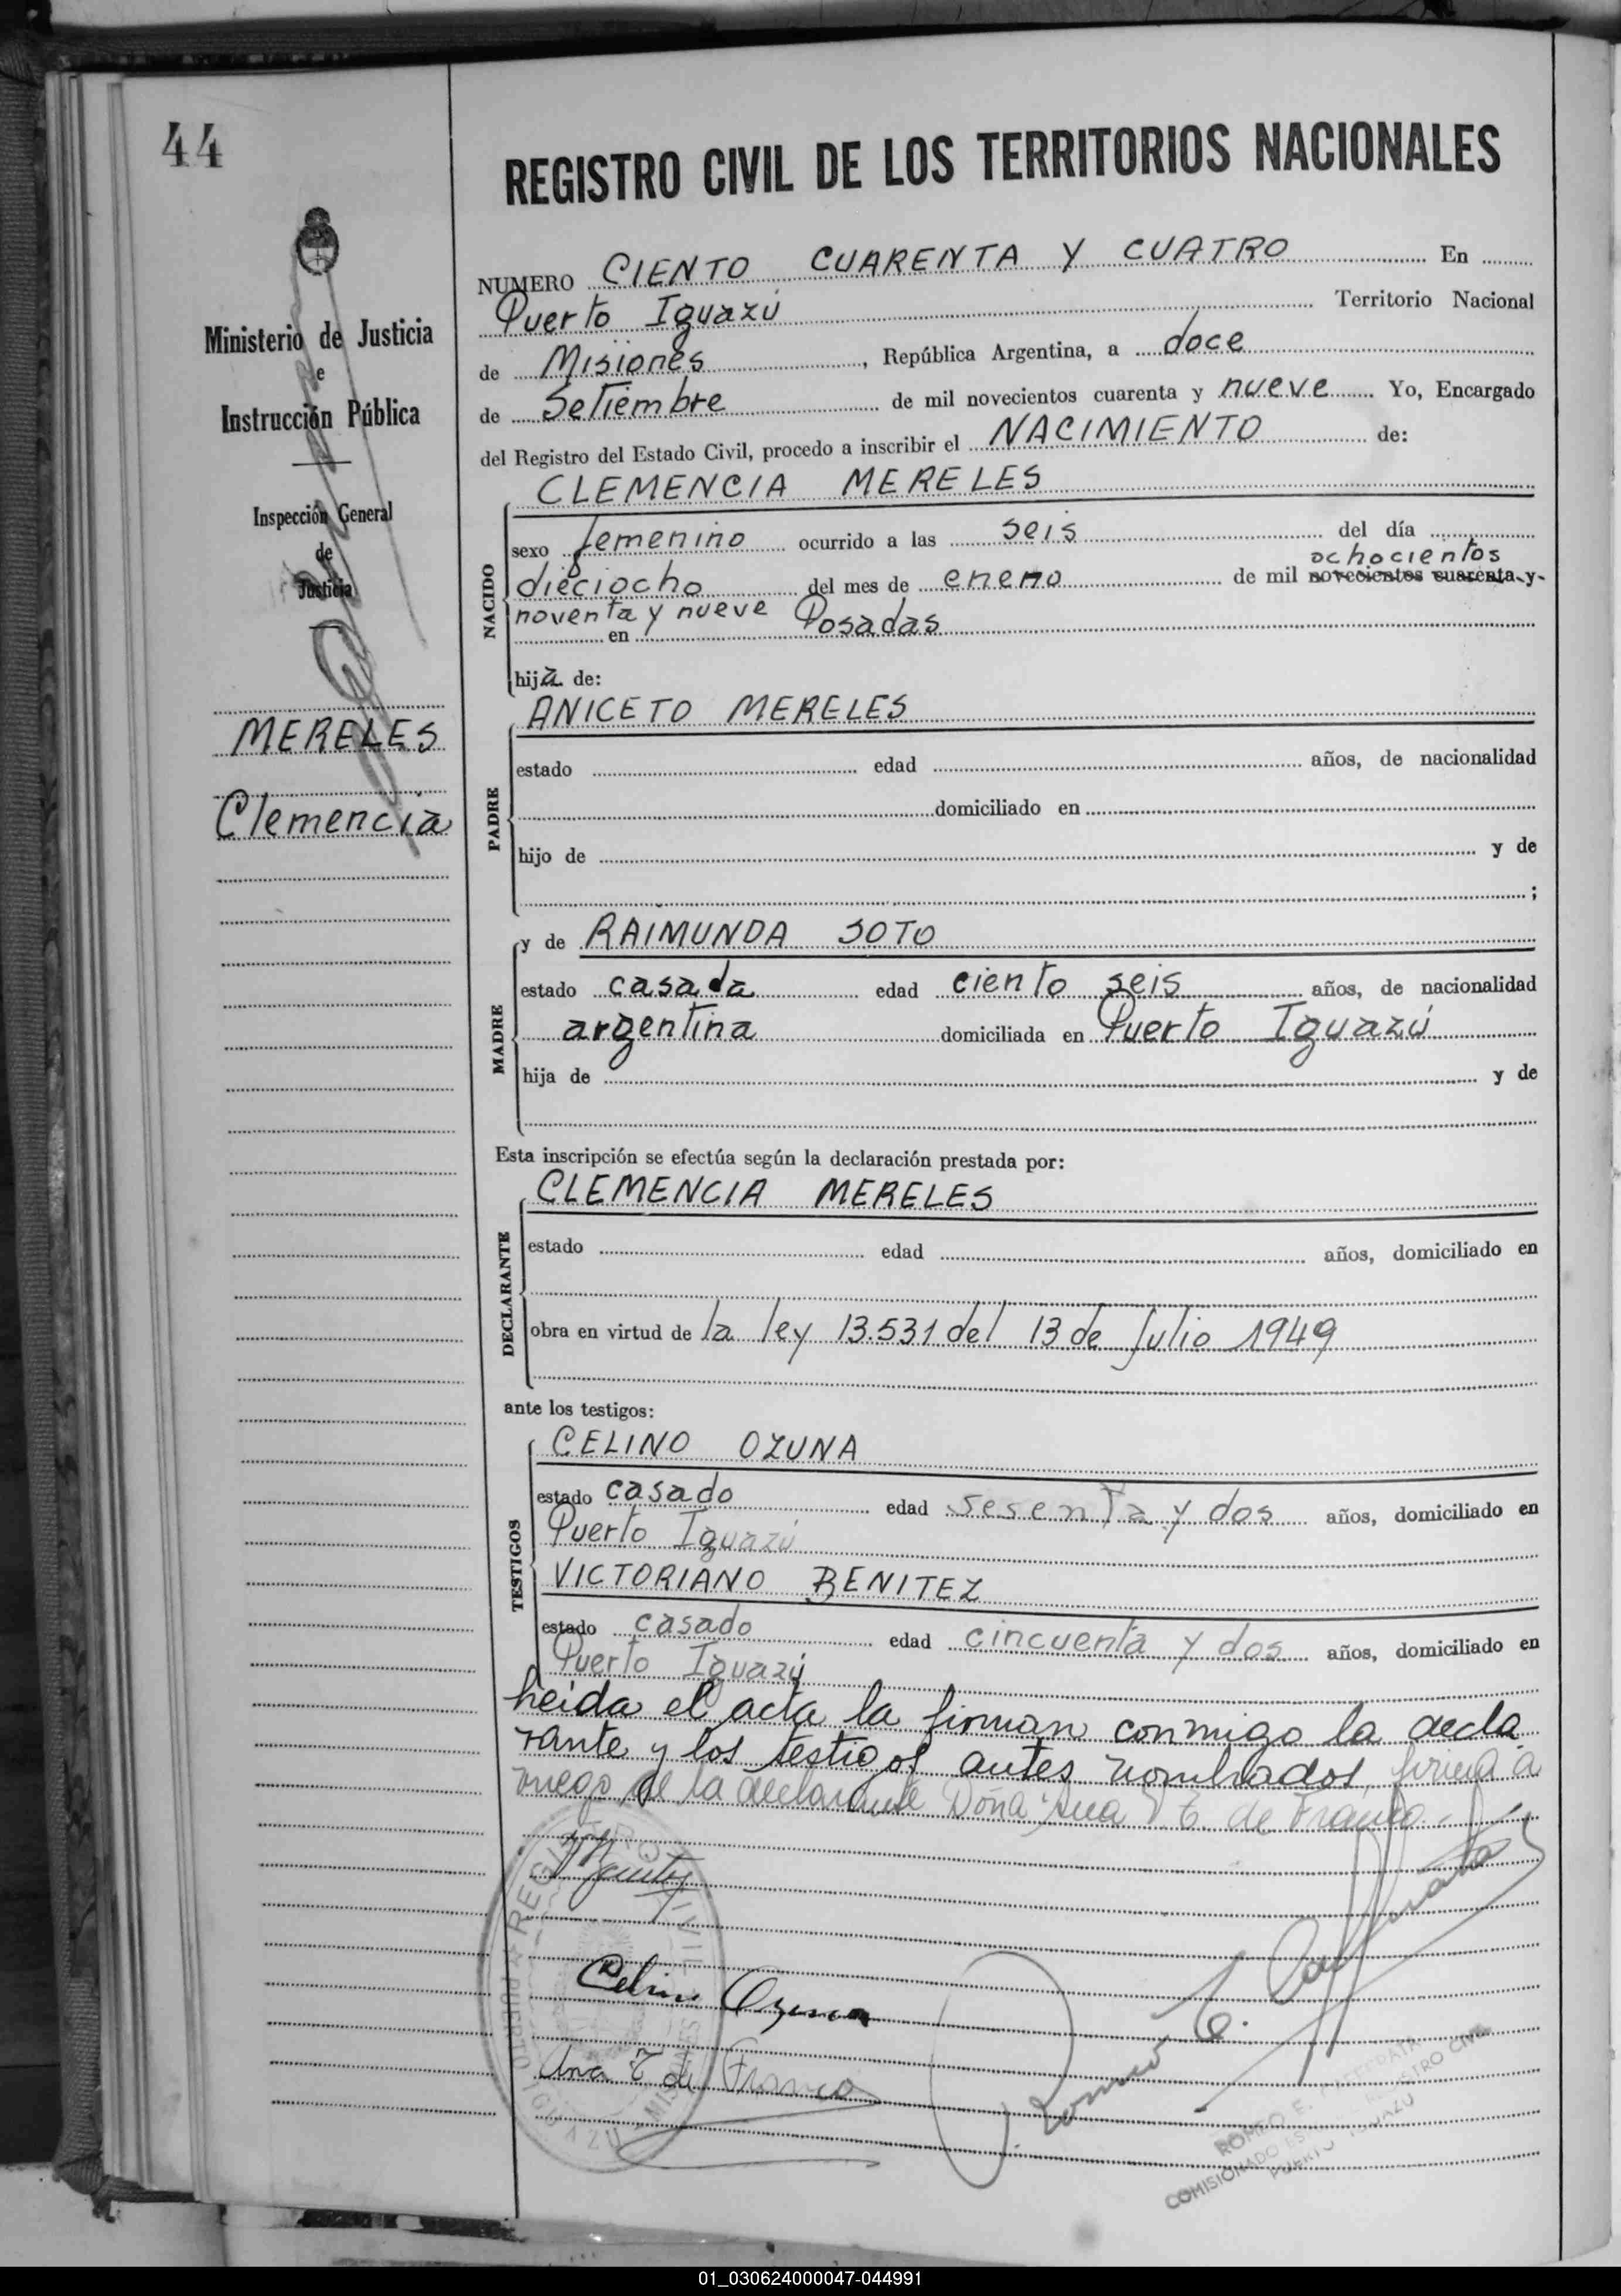 44
REGISTRO CIVIL DE LOS TERRITORIOS NACIONALES
NUMERO CIENTO CUARENTA Y CUATRO En
Puerto Iguazú Territorio Nacional
de Misiones, República Argentina, a doce
de Setiembre de mil novecientos cuarenta y nueve Yo, Encargado
del Registro del Estado Civil, procedo a inscribir el NACIMIENTO de:
Ministerio de Justicia
e
Instrucción Pública
Inspección General
de
Justicia
MERELES
Clemencia
NACIDO
CLEMENCIA MERELES
sexo femenino ocurrido a las seis del día
ochocientos
dieciocho del mes de enero de mil novecientos cuarenta y
noventa y nueve en Posadas
hija de:
PADRE
ANICETO MERELES
estado edad años, de nacionalidad
domiciliado en
hijo de y de
;
MADRE
y de RAIMUNDA SOTO
estado casada edad ciento seis años, de nacionalidad
argentina domiciliada en Puerto Iguazú
hija de y de
Esta inscripción se efectúa según la declaración prestada por:
DECLARANTE
CLEMENCIA MERELES
estado edad años, domiciliado en
obra en virtud de la ley 13.531 del 13 de Julio 1949
ante los testigos:
TESTIGOS
CELINO OZUNA
estado casado edad sesenta y dos años, domiciliado en
Puerto Iguazú
VICTORIANO BENITEZ
estado casado edad cincuenta y dos años, domiciliado en
Puerto Iguazú
Leida el acta la firman conmigo la decla
rante y los testigos antes nombrados, firma a
ruego de la declarante Doña Ana T. de Franco.
Celino Ozuna
Ana T de Franco
REGISTRO CIVIL
PUERTO IGUAZU MISIONES
ROMEO E.
COMISIONADO REGISTRO CIVIL
PUERTO IGUAZU
01_030624000047-044991